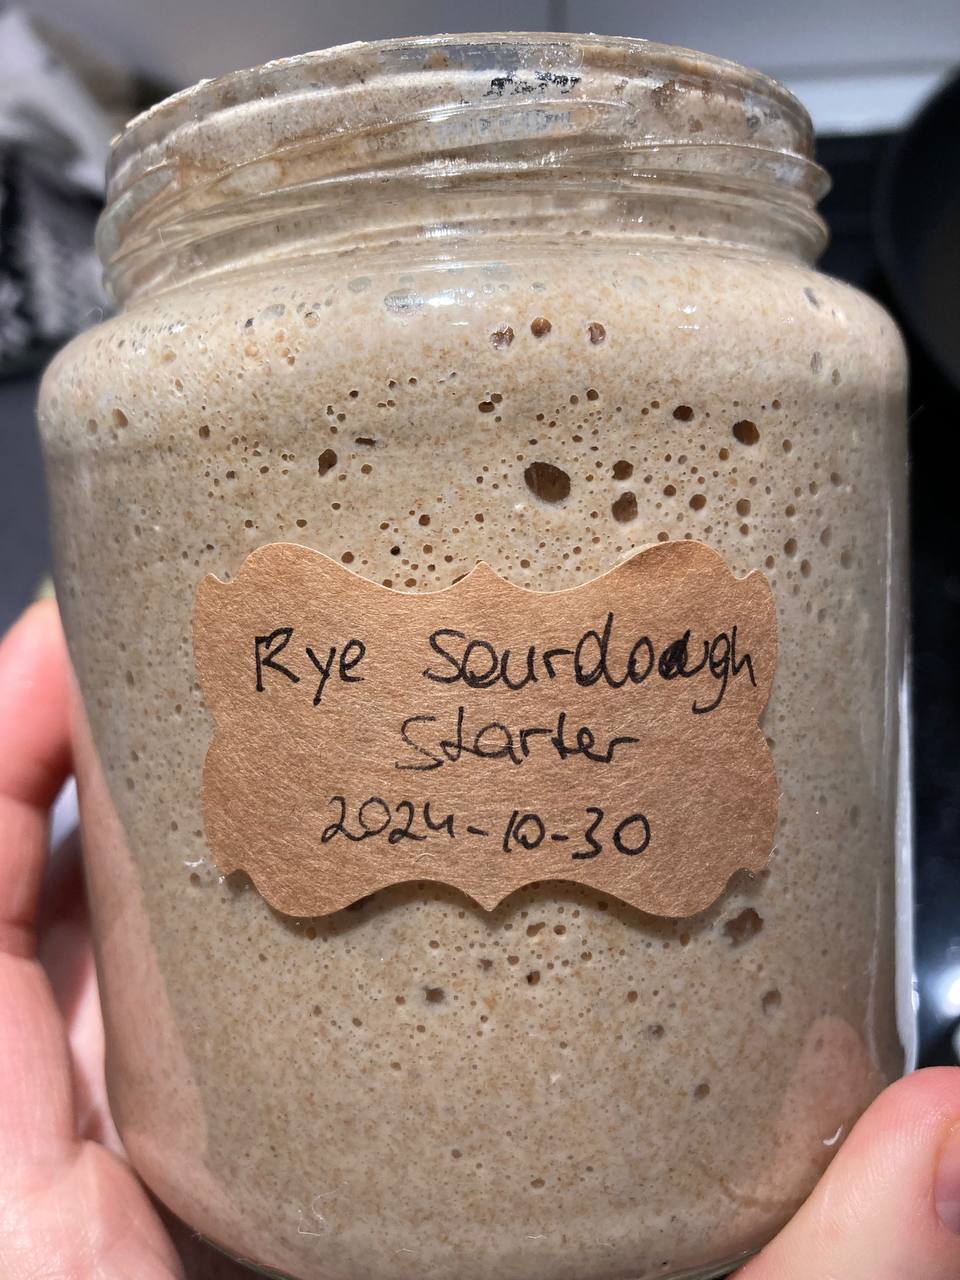 Rye Sourdough
Starter
2024-10-30